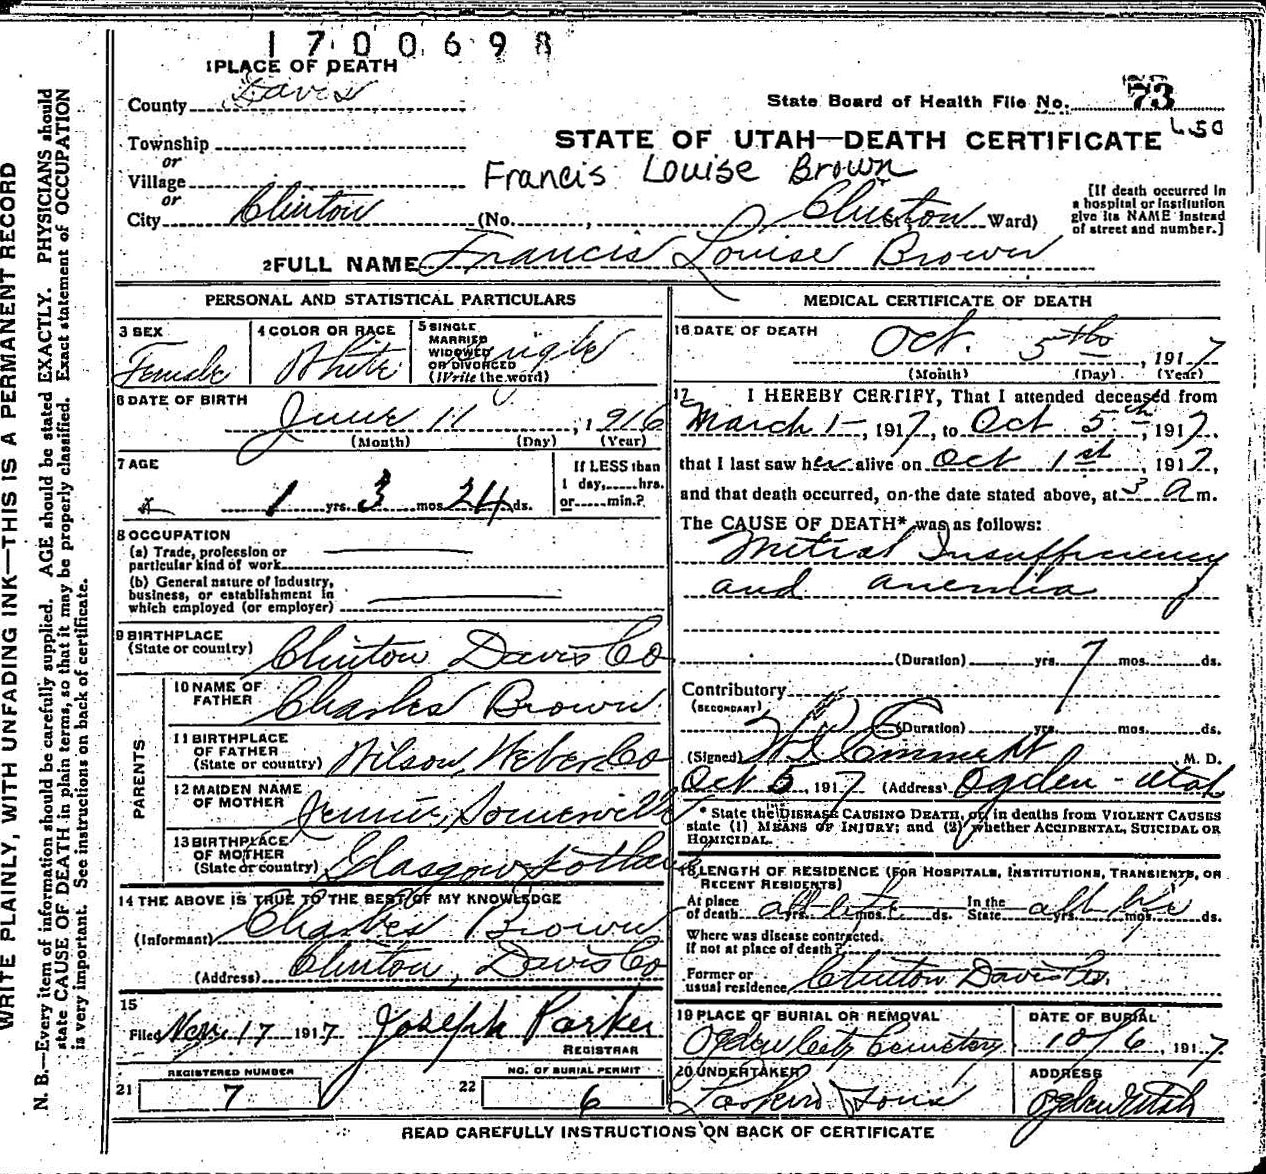 1700698
1 PLACE OF DEATH
County Davis
State Board of Health File No. 73
Township
or
STATE OF UTAH—DEATH CERTIFICATE
Village
Francis Louise Brown
or
City Clinton (No. , Clinton St., Ward)
[If death occurred in
a hospital or institution
give its NAME instead
of street and number.]
2 FULL NAME Francis Louise Brown
PERSONAL AND STATISTICAL PARTICULARS
3 SEX
Female
4 COLOR OR RACE
White
5 SINGLE
MARRIED
WIDOWED
OR DIVORCED
(Write the word)
Single
6 DATE OF BIRTH
June 11, 1916
(Month) (Day) (Year)
7 AGE
1 yrs. 3 mos 24 ds.
If LESS than
1 day,......hrs.
or......min.?
8 OCCUPATION
(a) Trade, profession or
particular kind of work
(b) General nature of Industry,
business, or establishment in
which employed (or employer)
9 BIRTHPLACE
(State or country) Clinton Davis Co
PARENTS
10 NAME OF
FATHER Charles Brown
11 BIRTHPLACE
OF FATHER
(State or country) Wilson, Weber Co
12 MAIDEN NAME
OF MOTHER Jennie Somerville
13 BIRTHPLACE
OF MOTHER
(State or country) Glasgow Scotland
14 THE ABOVE IS TRUE TO THE BEST OF MY KNOWLEDGE
(Informant) Charles Brown
(Address) Clinton, Davis Co
15
Filed Nov. 17 1917 Joseph Parker
REGISTRAR
REGISTERED NUMBER
21 7
NO. OF BURIAL PERMIT
22 6
MEDICAL CERTIFICATE OF DEATH
16 DATE OF DEATH
Oct. 5th, 1917
(Month) (Day) (Year)
17 I HEREBY CERTIFY, That I attended deceased from
March 1-, 1917, to Oct 5th, 1917,
that I last saw her alive on Oct 1st, 1917,
and that death occurred, on the date stated above, at 3 a m.
The CAUSE OF DEATH* was as follows:
Mitral Insufficiency
and anemia
(Duration) yrs. 7 mos. ds.
Contributory
(SECONDARY)
(Duration) yrs. mos. ds.
(Signed) Emmett M. D.
Oct 5, 1917 (Address) Ogden - Utah
* State the DISEASE CAUSING DEATH, or, in deaths from VIOLENT CAUSES
state (1) MEANS OF INJURY; and (2) whether ACCIDENTAL, SUICIDAL OR
HOMICIDAL.
18 LENGTH OF RESIDENCE (FOR HOSPITALS, INSTITUTIONS, TRANSIENTS, OR
RECENT RESIDENTS)
At place
of death all life yrs. mos. ds.
In the
State all life yrs. mos. ds.
Where was disease contracted.
If not at place of death?
Former or
usual residence Clinton Davis Co.
19 PLACE OF BURIAL OR REMOVAL
Ogden City Cemetery
DATE OF BURIAL
10/6, 1917
20 UNDERTAKER
ADDRESS
Ogden Utah
READ CAREFULLY INSTRUCTIONS ON BACK OF CERTIFICATE
WRITE PLAINLY, WITH UNFADING INK—THIS IS A PERMANENT RECORD
N. B.—Every item of information should be carefully supplied. AGE should be stated EXACTLY. PHYSICIANS should
state CAUSE OF DEATH in plain terms, so that it may be properly classified. Exact statement of OCCUPATION
is very important. See instructions on back of certificate.